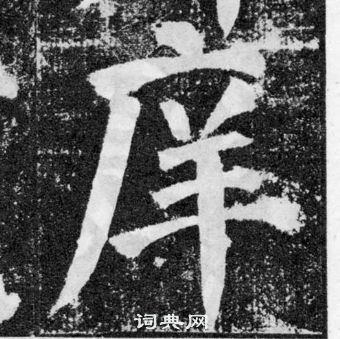 庠
词典网